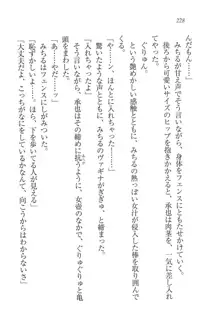 228
んだもん……」
みちるが甘え声でそう言いながら、身体をフェンスにもたせかける。
後ろから可愛いサイズのヒップを抱きかかえながら、承也は肉茎を、一気に差し入
れた。
ぐりゅん。
という艶めかしい感触とともに、みちるのヴァギナがぎぎゅっ、と締まった。
「や……ン、入れちゃったぁ」
「入れちゃったよ」
そのような声とともに、みちるの熱っぽい女汁が侵入した棒を取り囲んで
そう言いながら、承也はその締めに抗い、女壺のなかで、ぐりゅぐりゅと亀
頭をまわした。
「あ……やだっ」
みちるがフェンスにしがみつく。
「恥ずかしいよぅ、ほら、下を歩いてる人が見える」
「大丈夫だよ、こっちがなに
かなんて、向こうからはわからないさ」